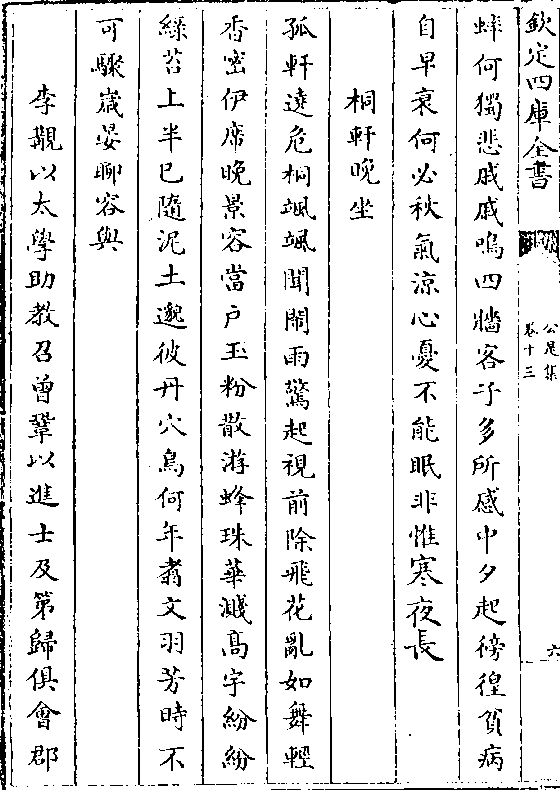 欽定四庫全書
公是集
卷十三
六
蟀何獨悲戚戚鳴四牆客子多所感中夕起徬徨貧病
自早衰何必秋氣涼心憂不能眠非惟寒夜長
桐軒晚坐
孤軒遶危桐颯颯聞鬧雨驚起視前除飛花亂如舞輕
香密伊席晚景容當戶玉粉散游蜂珠華濺高宇紛紛
綠苔上半已隨泥土邈彼丹穴鳥何年翥文羽芳時不
可驟嵗晏聊容與
李觀以太學助教召曾鞏以進士及第歸俱會郡